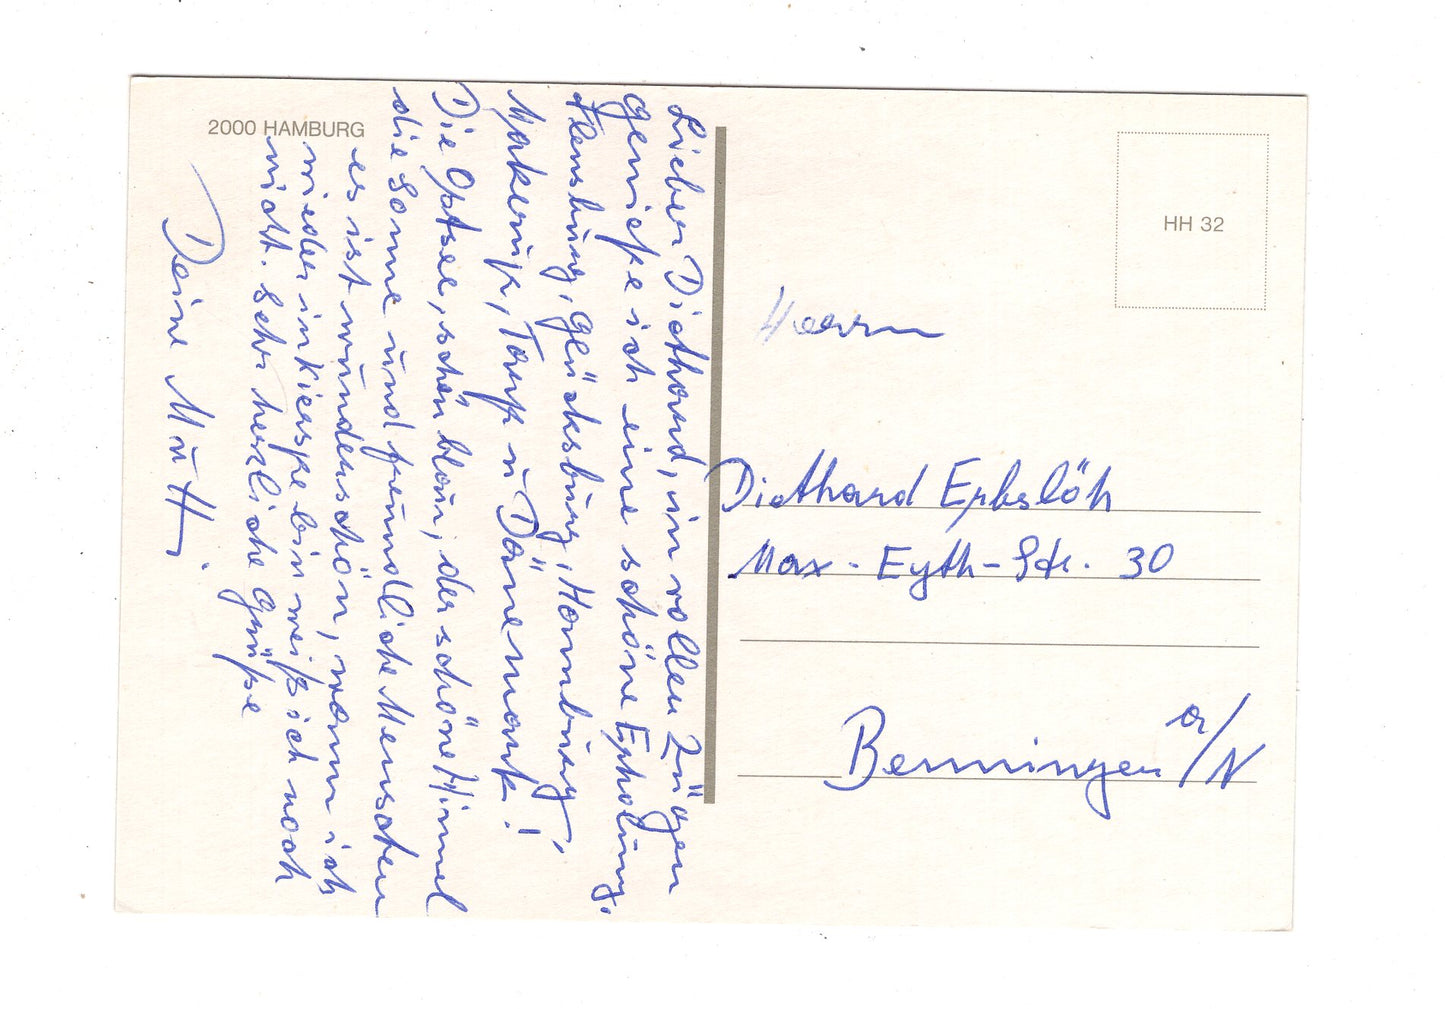 2000 HAMBURG
Lieber Diethard, in vollen Zügen
genieße ich eine schöne Erholung,
Flensburg, Glücksburg, Hamburg,
Makerup, Tarp u Dänemark!
Die Ostsee, schön blau, der schöne Himmel
die Sonne und freundliche Menschen
es ist wunderschön, wann ich
wieder in Kierspe bin weiß ich noch
nicht. Sehr herzliche Grüße
Deine Mutti
HH 32
Herrn
Diethard Erbslöh
Max-Eyth-Str. 30
Benningen a/N